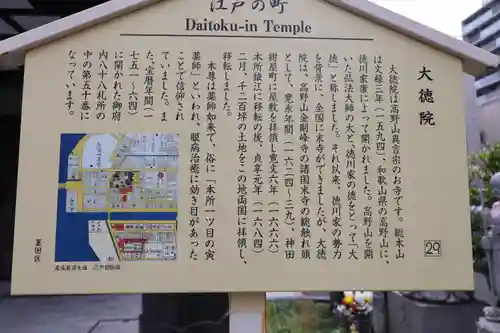 江戸の町
Daitoku-in Temple
大徳院
大徳院は高野山真言宗のお寺です。総本山
は文禄三年（一五九四）、和歌山県の高野山に、
徳川家康によって開かれました。高野山を開
いた弘法大師の大と、徳川家の徳をとって「大
徳」と称しました。それ以来、徳川家の勢力
を背景に、全国に末寺ができましたが、大徳
院は、高野山金剛峰寺の諸国末寺の総触れ頭
として、寛永年間（一六二四～三九）、神田
紺屋町に屋敷を拝領し寛文六年（一六六六）
本所猿江に移転の後、貞享元年（一六八四）
二月、千二百坪の土地をこの地両国に拝領し、
移転しました。
本尊は薬師如来で、俗に一本所一ツ目の寅
薬師」といわれ、眼病治癒に効き目があった
ことで信仰され
ていました。ま
た、宝暦年間（一
七五一～六四）
に開かれた御府
内八十八札所の
中の第五十番に
なっています。
29
墨田区